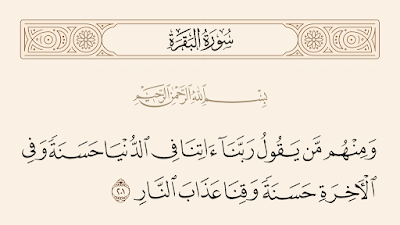 سُورَةُ البَقَرَةِ
بِسْمِ اللَّهِ الرَّحْمَنِ الرَّحِيمِ
وَمِنْهُم مَّن يَقُولُ رَبَّنَآ ءَاتِنَا فِى ٱلدُّنْيَا حَسَنَةً وَفِى
ٱلْأَخِرَةِ حَسَنَةً وَقِنَا عَذَابَ ٱلنَّارِ ٢٠١